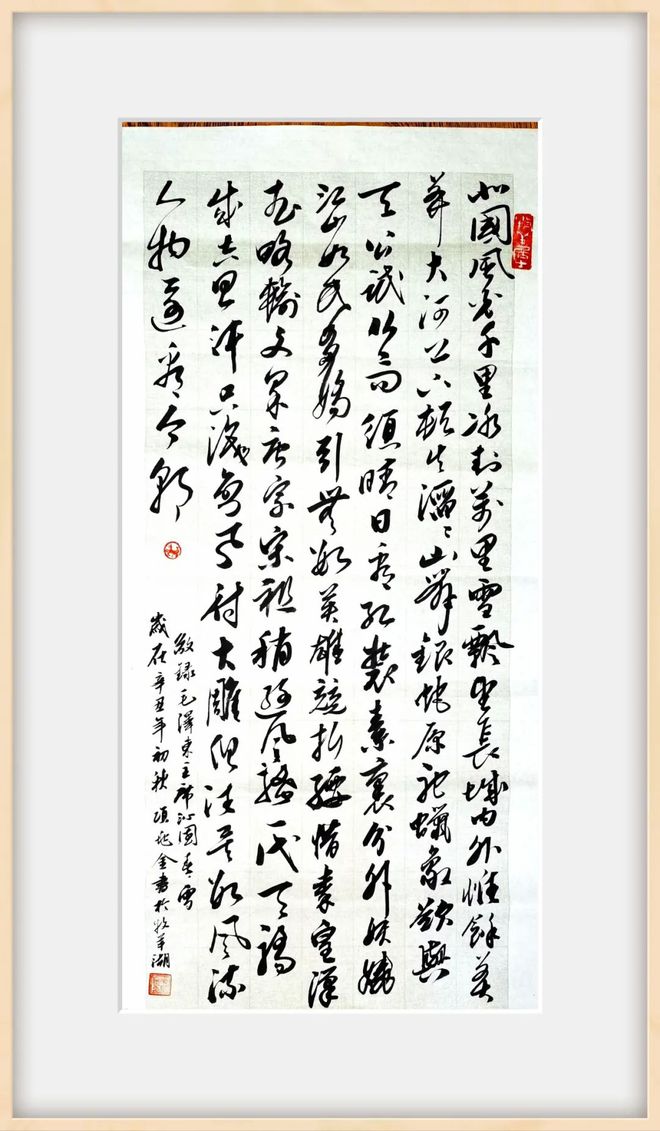 北國風光千里冰封萬里雪飄望長城內外惟餘莽
莽大河上下頓失滔滔山舞銀蛇原馳蠟象欲與
天公試比高須晴日看紅裝素裹分外妖嬈
江山如此多嬌引無數英雄競折腰惜秦皇漢
武略輸文采唐宗宋祖稍遜風騷一代天驕
成吉思汗只識彎弓射大雕俱往矣數風流
人物還看今朝
敬錄毛澤東主席沁園春雪
歲在辛丑年初秋項兆金書於牧羊湖